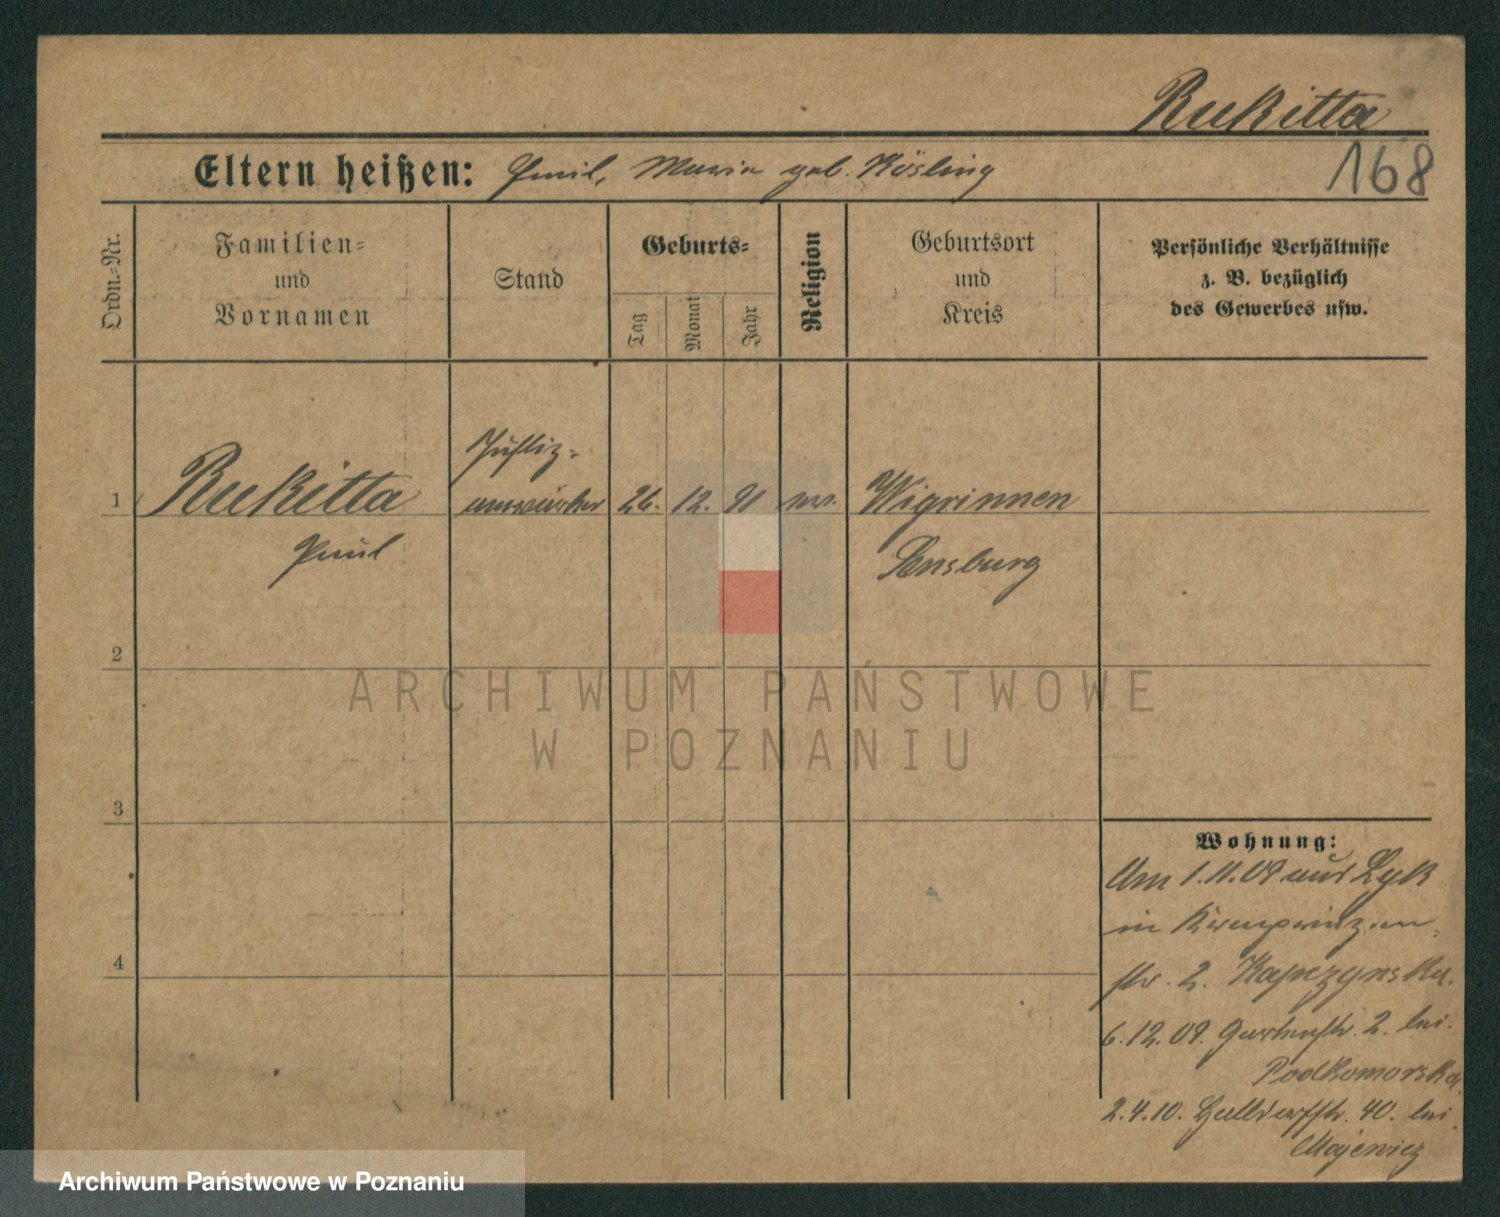 Rukitta
168
Eltern heißen: Paul, Maria geb. Kösling
Ordn.=Nr.
Familien=
und
Vornamen
Stand
Geburts=
Tag
Monat
Jahr
Religion
Geburtsort
und
Kreis
Persönliche Verhältnisse
z. B. bezüglich
des Gewerbes usw.
Justiz=
1 Rukitta anwärter 26. 12. 91 ev. Wigrinnen
Paul Sensburg
2
ARCHIWUM PAŃSTWOWE
W POZNANIU
3
Wohnung:
Am 1.11.09 aus Lyk
in Kronprinzen
str. 2.
4
6.12.09. Gartenstr. 2. bei
Podkomorska
2.4.10. Halldorfstr. 40. bei
Majewicz
Archiwum Państwowe w Poznaniu